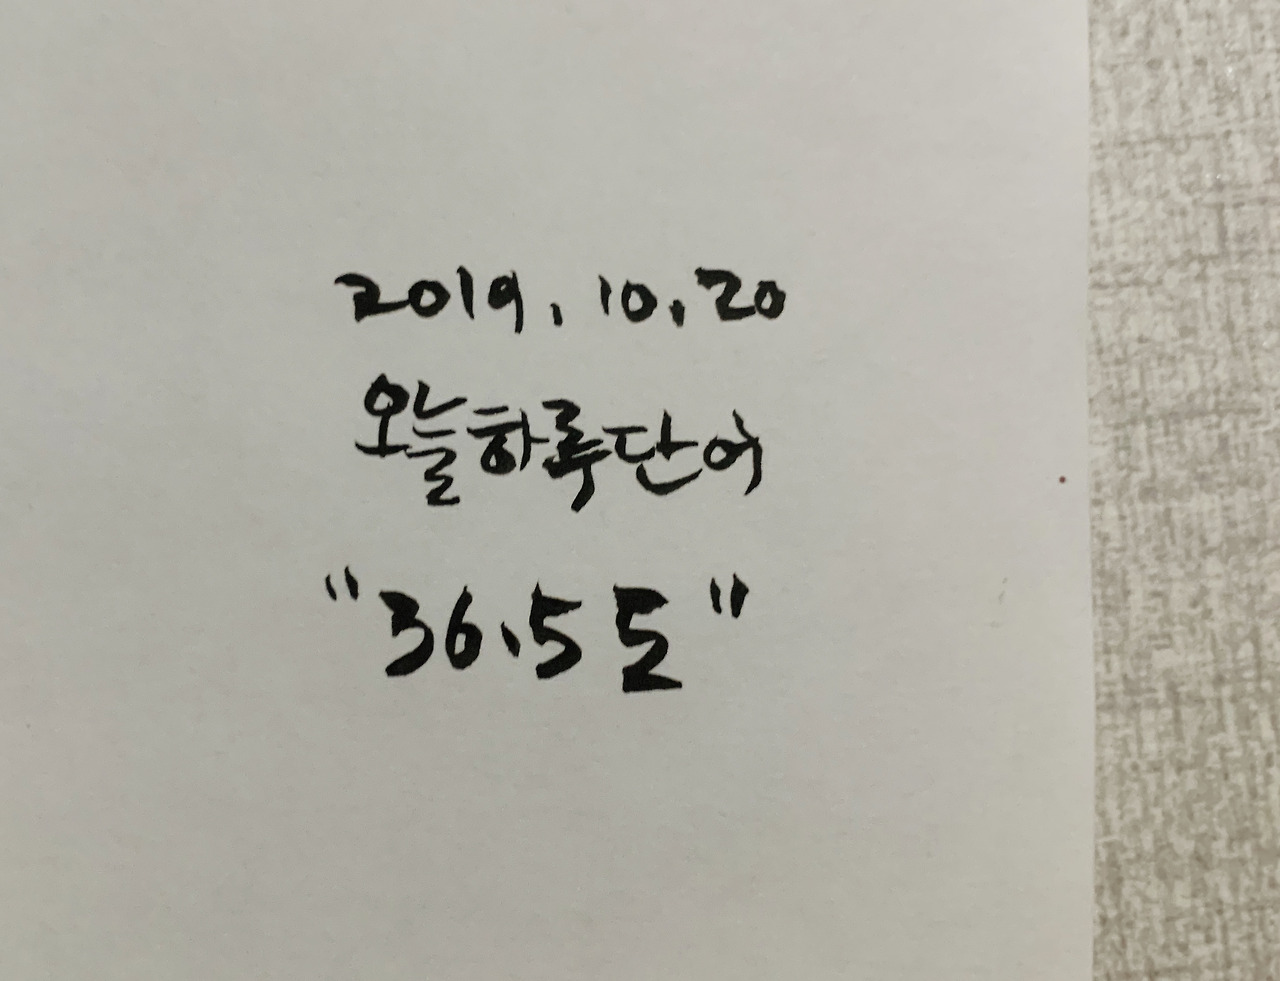 2019. 10. 20
오늘하루단어
"36.5도"